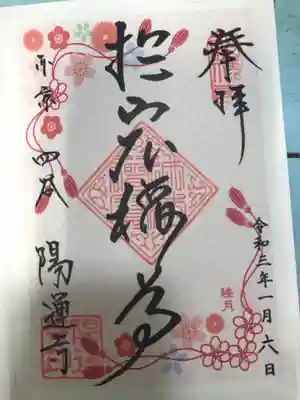 奉拝
令和三年一月六日
睦月
於岩稲荷
東京四谷
陽運寺